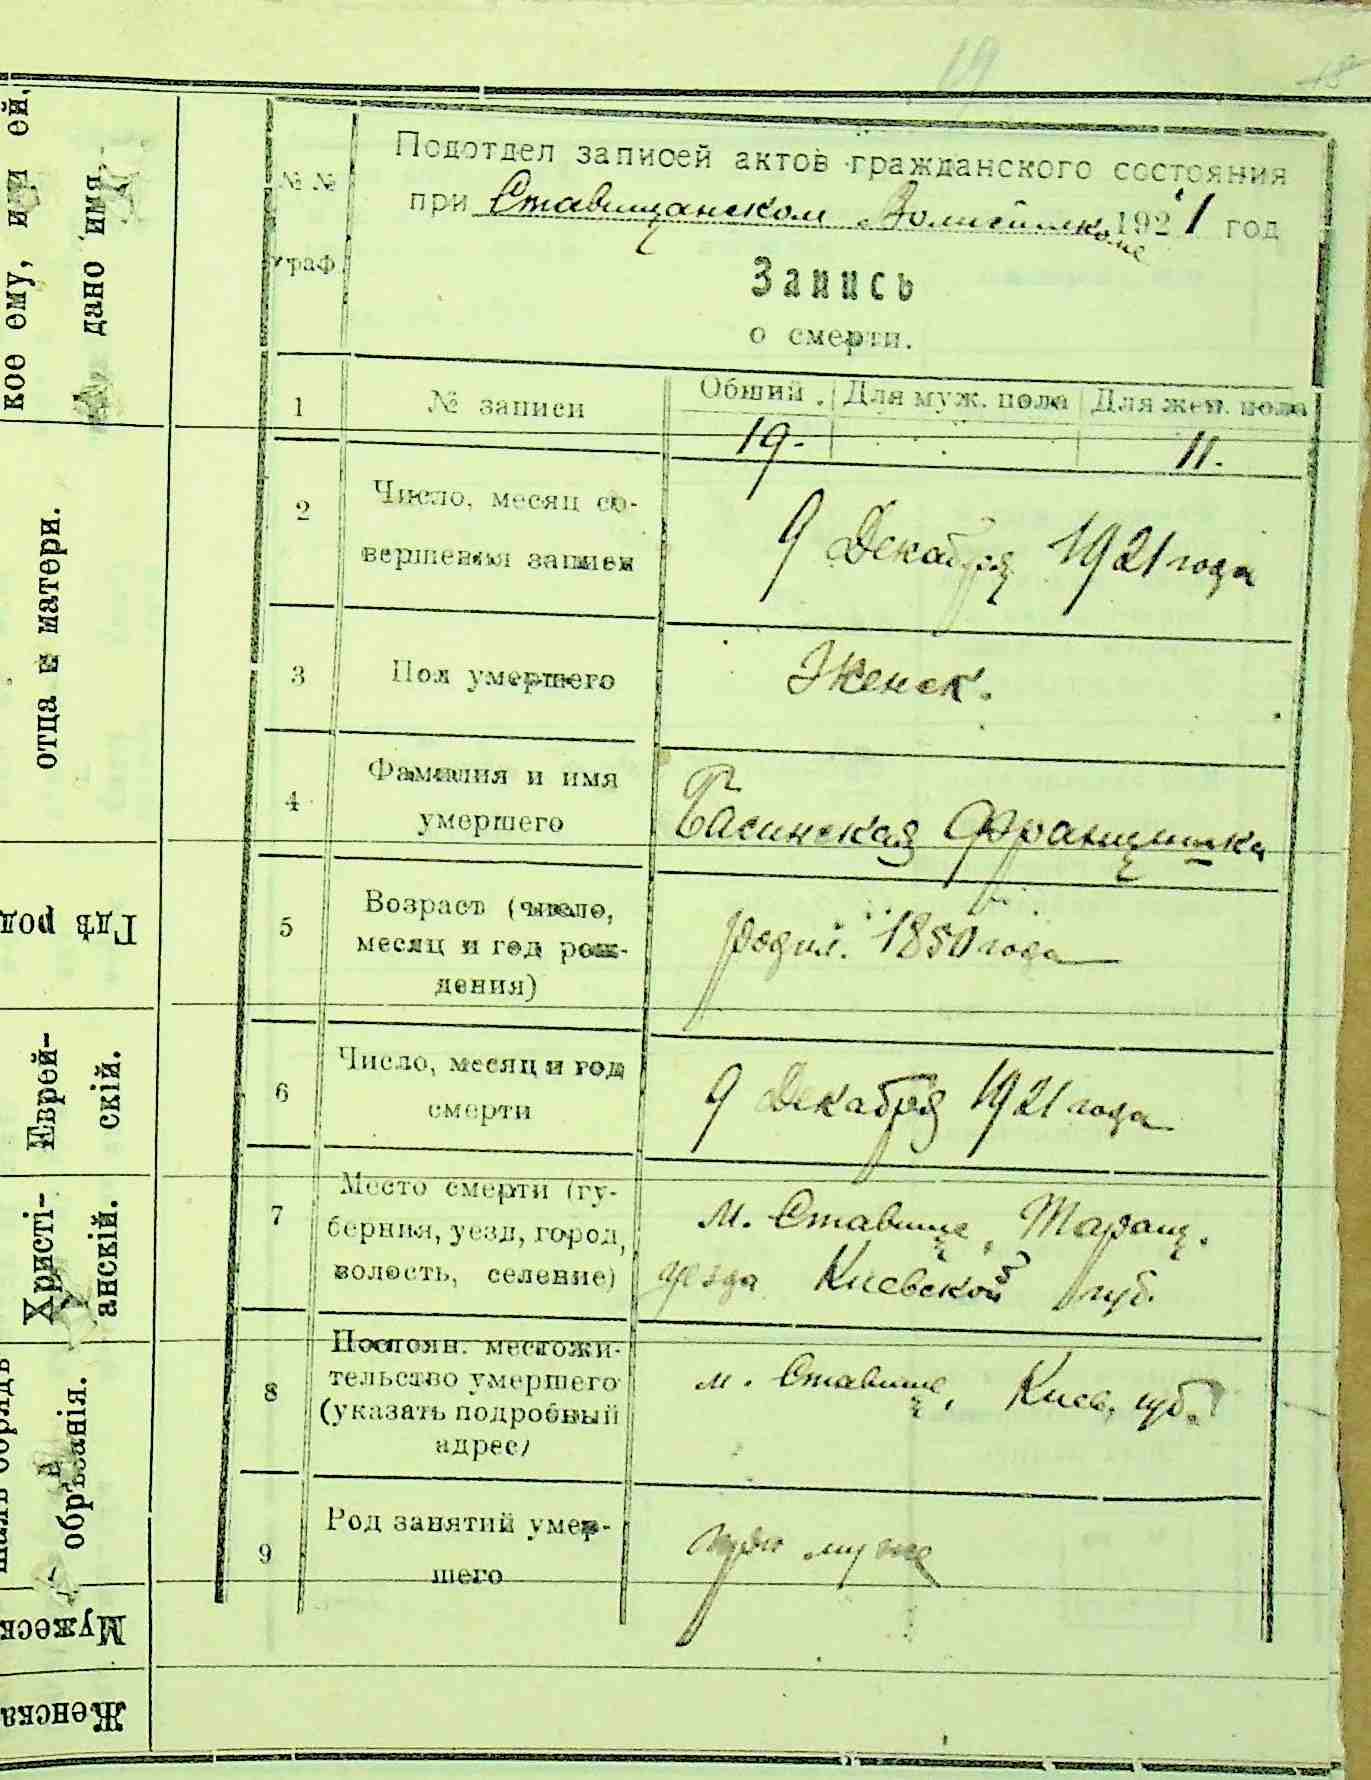 19
18
кое ему, или ей,
дано имя.
отца и матери.
Гдѣ род
Еврей-
скій.
Христі-
анскій.
обрѣзанія.
Мужеск
Женска
№ №
граф
Подотдел записей актов гражданского состояния
при Ставищанском Волисполкоме 1921 год
Запись
о смерти.
1 № записи Общий. Для муж. пола Для жен. пола
19. 11.
2 Число, месяц со-
вершения записи
9 Декабря 1921 года
3 Пол умершего Женск.
4 Фамилия и имя
умершего
Басинская Францишка
5 Возраст (число,
месяц и год рож-
дения)
родил. 1850 года
6 Число, месяц и год
смерти
9 Декабря 1921 года
7 Место смерти (гу-
берния, уезд, город,
волость, селение)
м. Ставище, Таращ.
уезда Киевской губ.
8 Постоян. местожи-
тельство умершего
(указать подробный
адрес)
м. Ставище, Киев. губ.
9 Род занятий умер-
шего
при муже